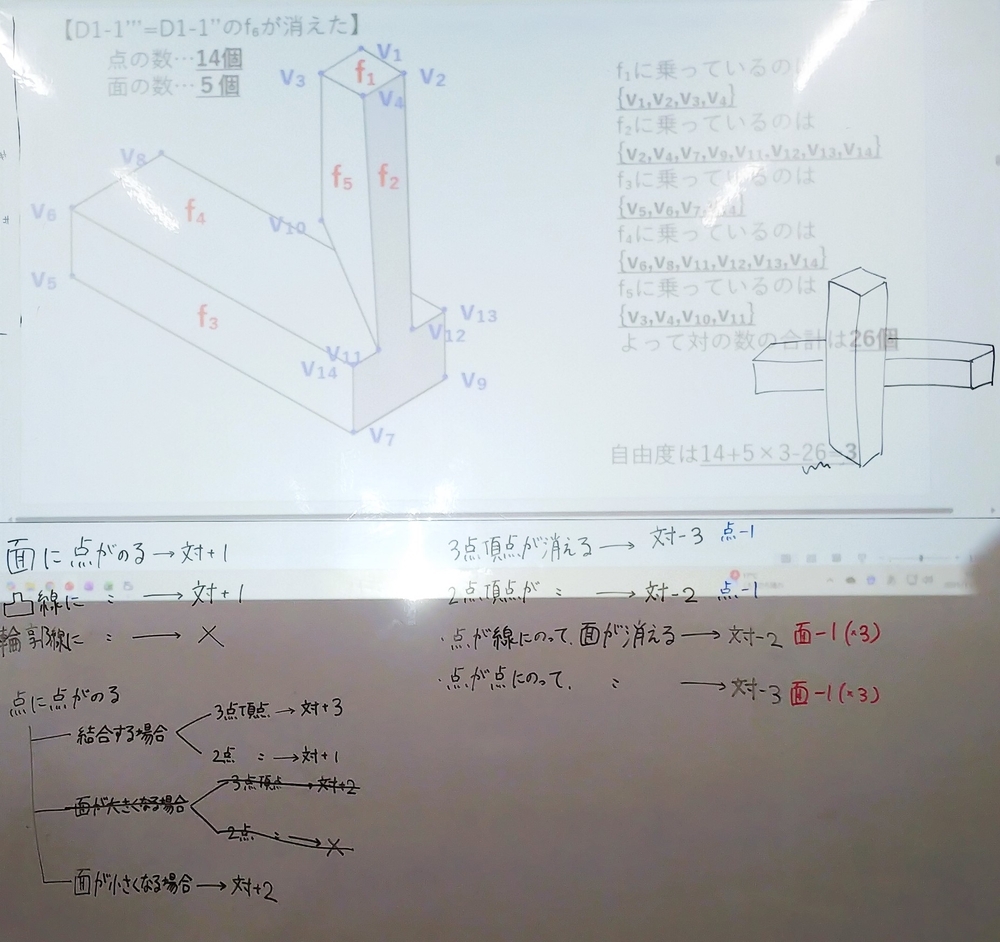 【D1-1'''=D1-1''のf₆が消えた】
点の数…14個
面の数…5個
V₁
V₃
V₂
f₁
V₄
V₈
f₅
f₂
V₆
f₄
V₁₀
V₅
f₃
V₁₃
V₁₂
V₁₁
V₁₄
V₉
V₇
f₁に乗っているのは
{V₁,V₂,V₃,V₄}
f₂に乗っているのは
{V₂,V₄,V₇,V₉,V₁₁,V₁₂,V₁₃,V₁₄}
f₃に乗っているのは
{V₅,V₆,V₇,
f₄に乗っているのは
{V₆,V₈,V₁₁,V₁₂,V₁₃,V₁₄}
f₅に乗っているのは
{V₃,V₄,V₁₀,V₁₁}
よって対の数の合計は26個
自由度は14+5×3-26=3
面に点がのる→対+1
凸線に 〃 →対+1
輪郭線に 〃 →×
点に点がのる
結合する場合
3点頂点→対+3
2点 〃 →対+1
面が大きくなる場合
3点頂点→対+2
2点 〃 →×
面が小さくなる場合→対+2
3点頂点が消える→対-3 点-1
2点頂点が 〃 →対-2 点-1
・点が線にのって、面が消える→対-2 面-1(×3)
・点が点にのって、 〃 →対-3 面-1(×3)